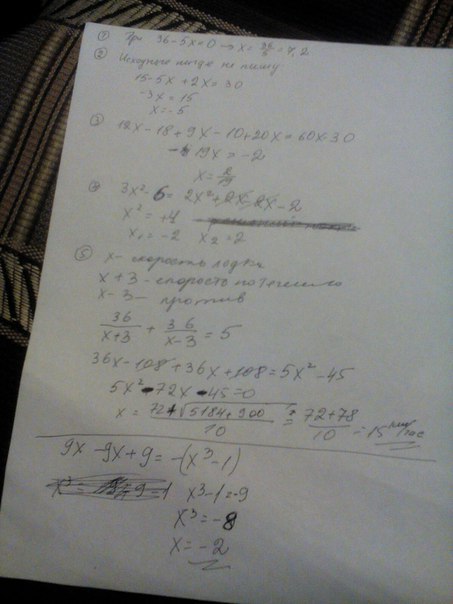 ① При 36-5x=0 → x=36/5=7,2
② Исходные нигде не пишу
15-5x+2x=30
-3x=15
x=-5
③ 12x-18+9x-10+20x=60x-30
-19x=-2
x=2/19
④ 3x²-6=2x²+2x-2x-2
x²=+4
x₁=-2 x₂=2
⑤ x- скорость лодки
x+3-скорость по течению
x-3- против
36/(x+3) + 36/(x-3) = 5
36x-108+36x+108=5x²-45
5x²-72x-45=0
x = (72+√(5184+900))/10 = (72+78)/10 = 15 км/час
9x-9x+9=-(x³-1)
x³-1=-9
x³=-8
x=-2